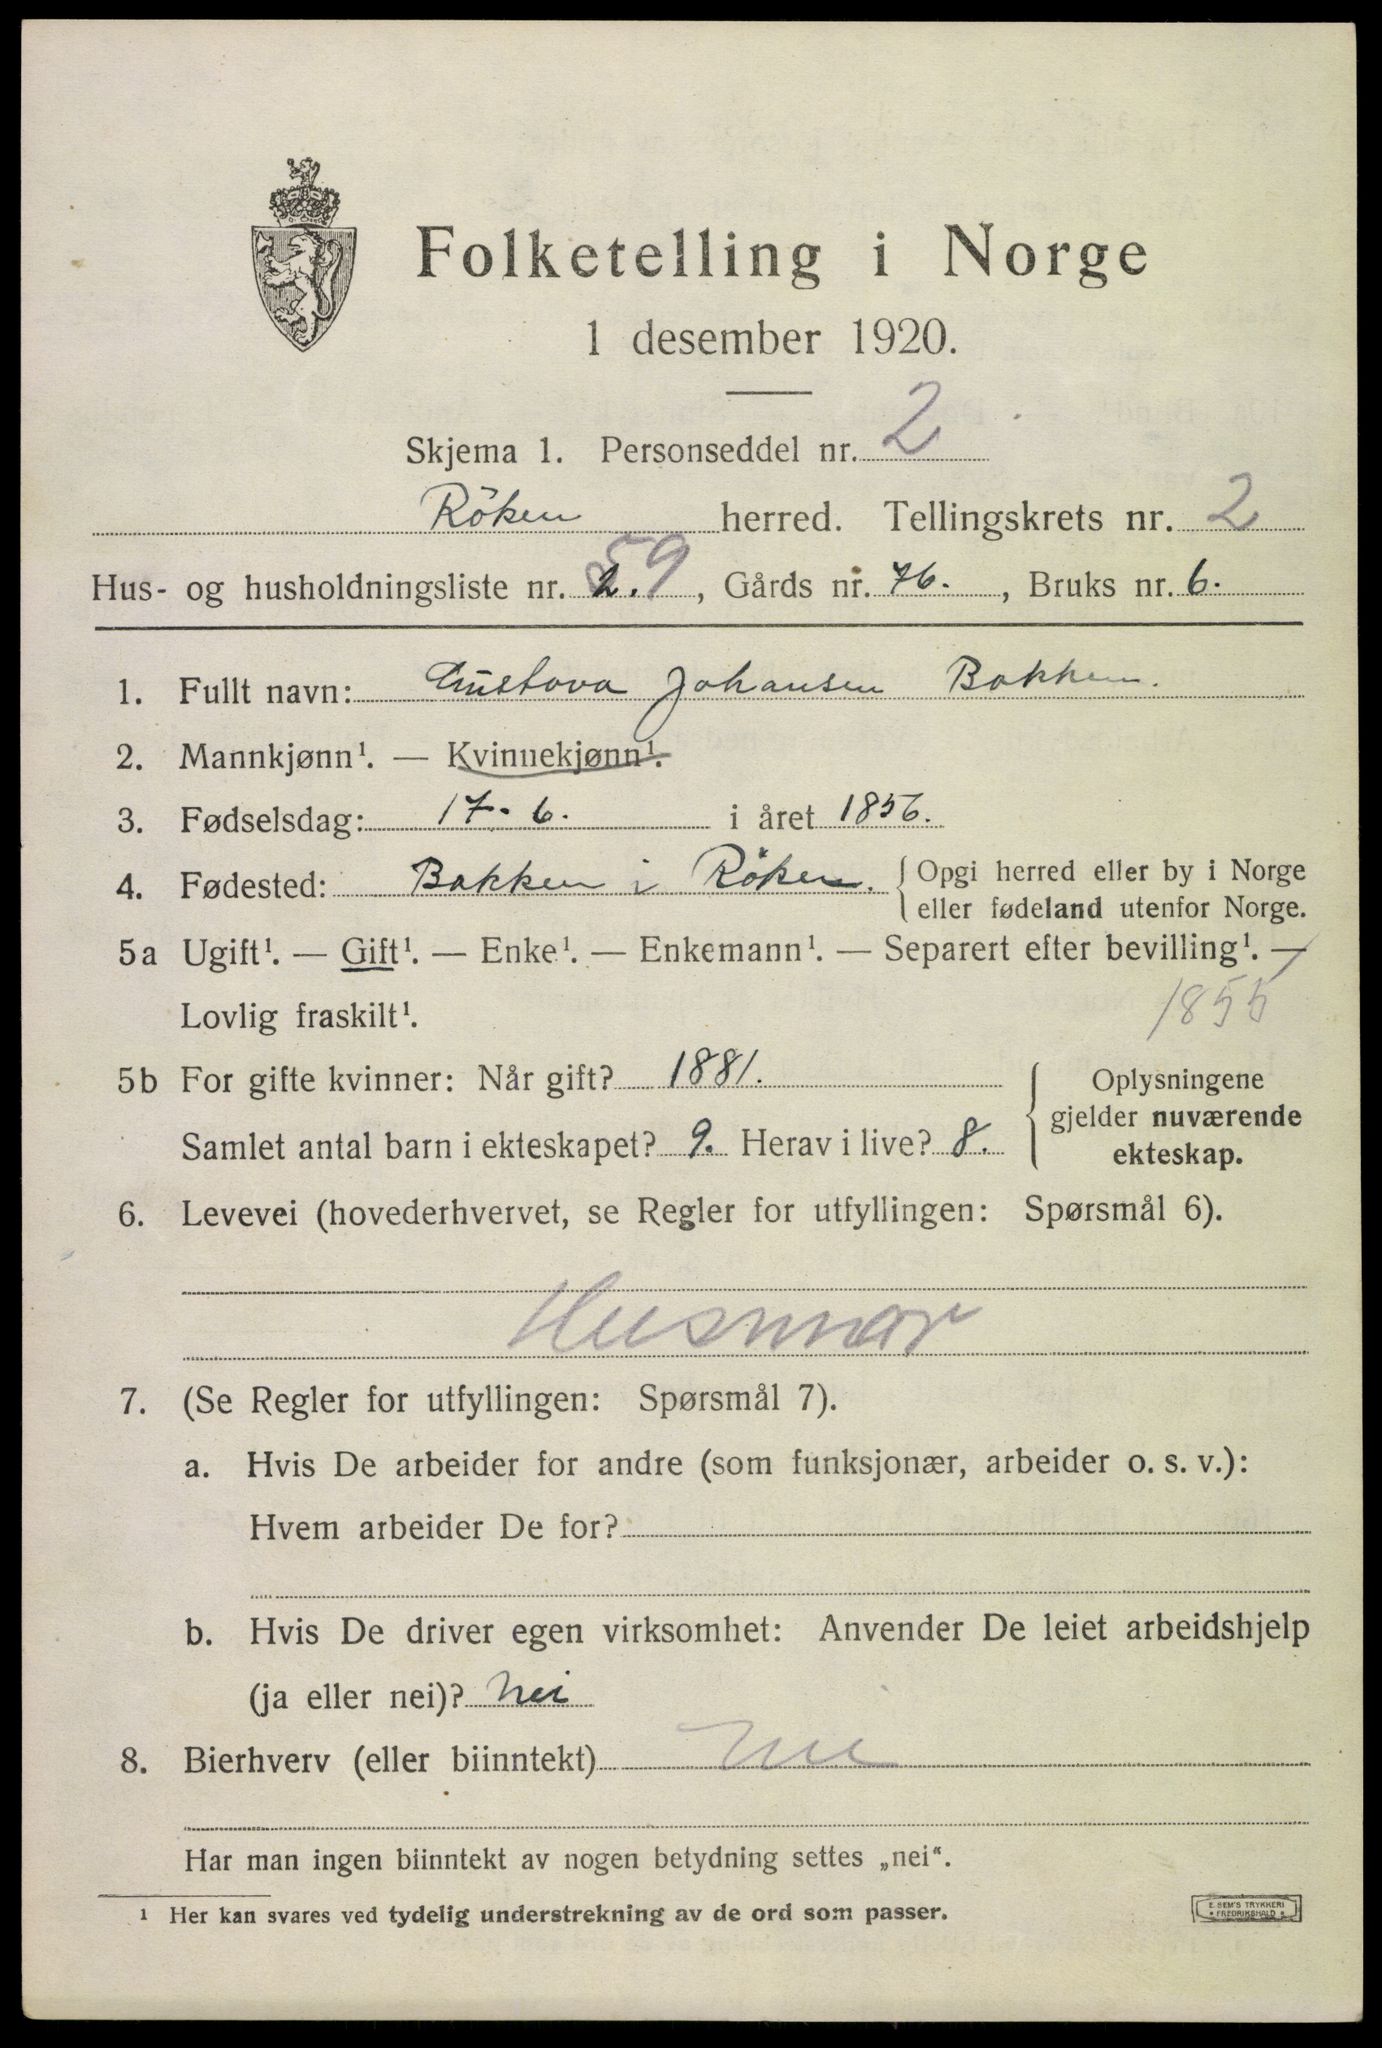 Folketelling i Norge
1 desember 1920.
Skjema 1. Personseddel nr. 2
Röken herred. Tellingskrets nr. 2
Hus- og husholdningsliste nr. 59, Gårds nr. 76., Bruks nr. 6.
1. Fullt navn: Gustava Johansen Bakken.
2. Mannkjønn¹. — Kvinnekjønn¹.
3. Fødselsdag: 17-6. i året 1856.
4. Fødested: Bakken i Röken. Opgi herred eller by i Norge
eller fødeland utenfor Norge.
5a Ugift¹. — Gift¹. — Enke¹. — Enkemann¹. — Separert efter bevilling¹. —
Lovlig fraskilt¹. 1855
5b For gifte kvinner: Når gift? 1881. Oplysningene
gjelder nuværende
Samlet antal barn i ekteskapet? 9. Herav i live? 8. ekteskap.
6. Levevei (hovederhvervet, se Regler for utfyllingen: Spørsmål 6).
Husmor
7. (Se Regler for utfyllingen: Spørsmål 7).
a. Hvis De arbeider for andre (som funksjonær, arbeider o. s. v.):
Hvem arbeider De for?
b. Hvis De driver egen virksomhet: Anvender De leiet arbeidshjelp
(ja eller nei)? Nei
8. Bierhverv (eller biinntekt) Nei
Har man ingen biinntekt av nogen betydning settes „nei“.
¹ Her kan svares ved tydelig understrekning av de ord som passer.
E. SEM'S TRYKKERI
FREDRIKSHALD